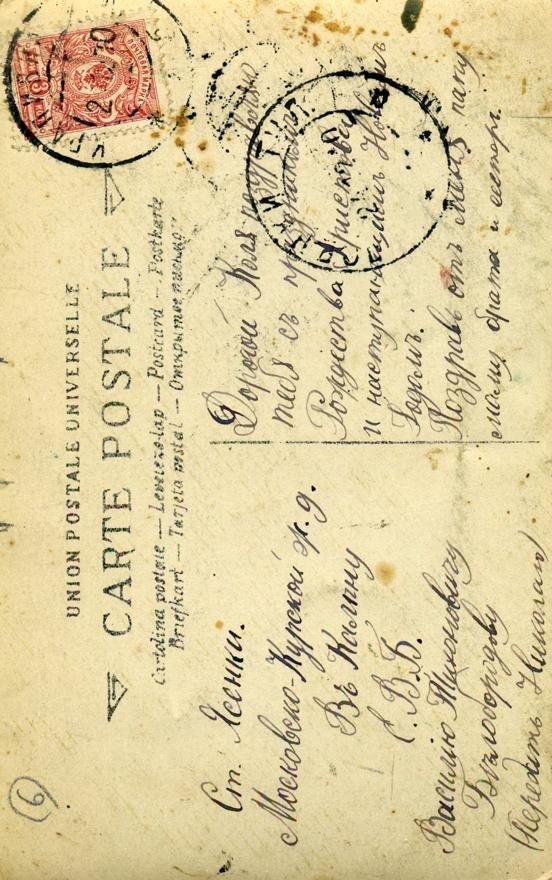 UNION POSTALE UNIVERSELLE
CARTE POSTALE
Cartolina postale — Levelezo-lap — Postcard — Postkarte
Briefkart — Tarjeta postal — Открытое письмо
Ст. Ясенки.
Московско-Курской ж. д.
Въ
Е. В. Б.
Василію Тихоновичу
(Передать Николаю)
Дорогой Коля
тебя съ
Рождества Христова
и наступающимъ Новымъ
Годомъ.
Поздравь отъ меня папу
маму брата и сестеръ
6